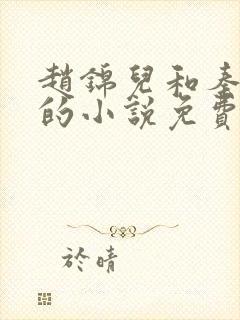 趙錦兒和秦
的小說免費
於晴